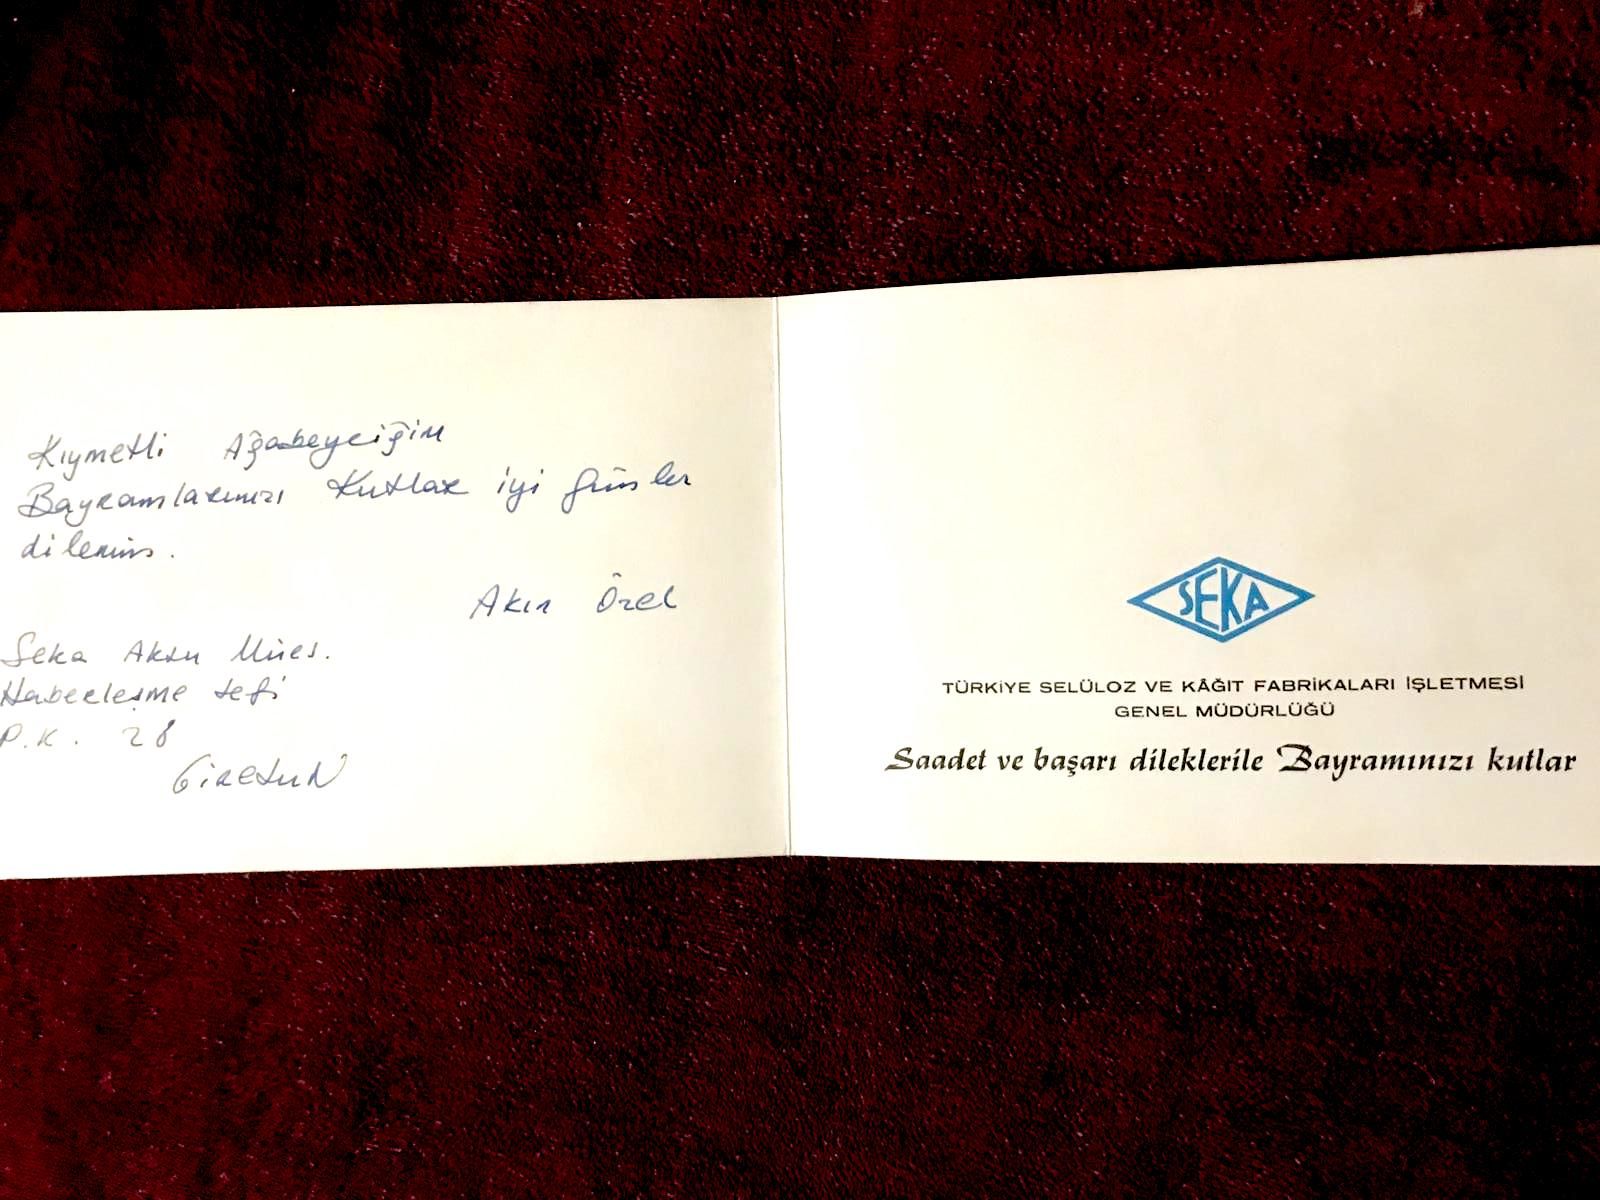 Kıymetli Ağabeyciğim
Bayramlarınızı Kutlar iyi günler
dilerim.
Akın Özel
Seka Aksu Mües.
Haberleşme Şefi
P.K. 28
Giresun
SEKA
TÜRKİYE SELÜLOZ VE KÂĞIT FABRİKALARI İŞLETMESİ
GENEL MÜDÜRLÜĞÜ
Saadet ve başarı dileklerile Bayramınızı kutlar